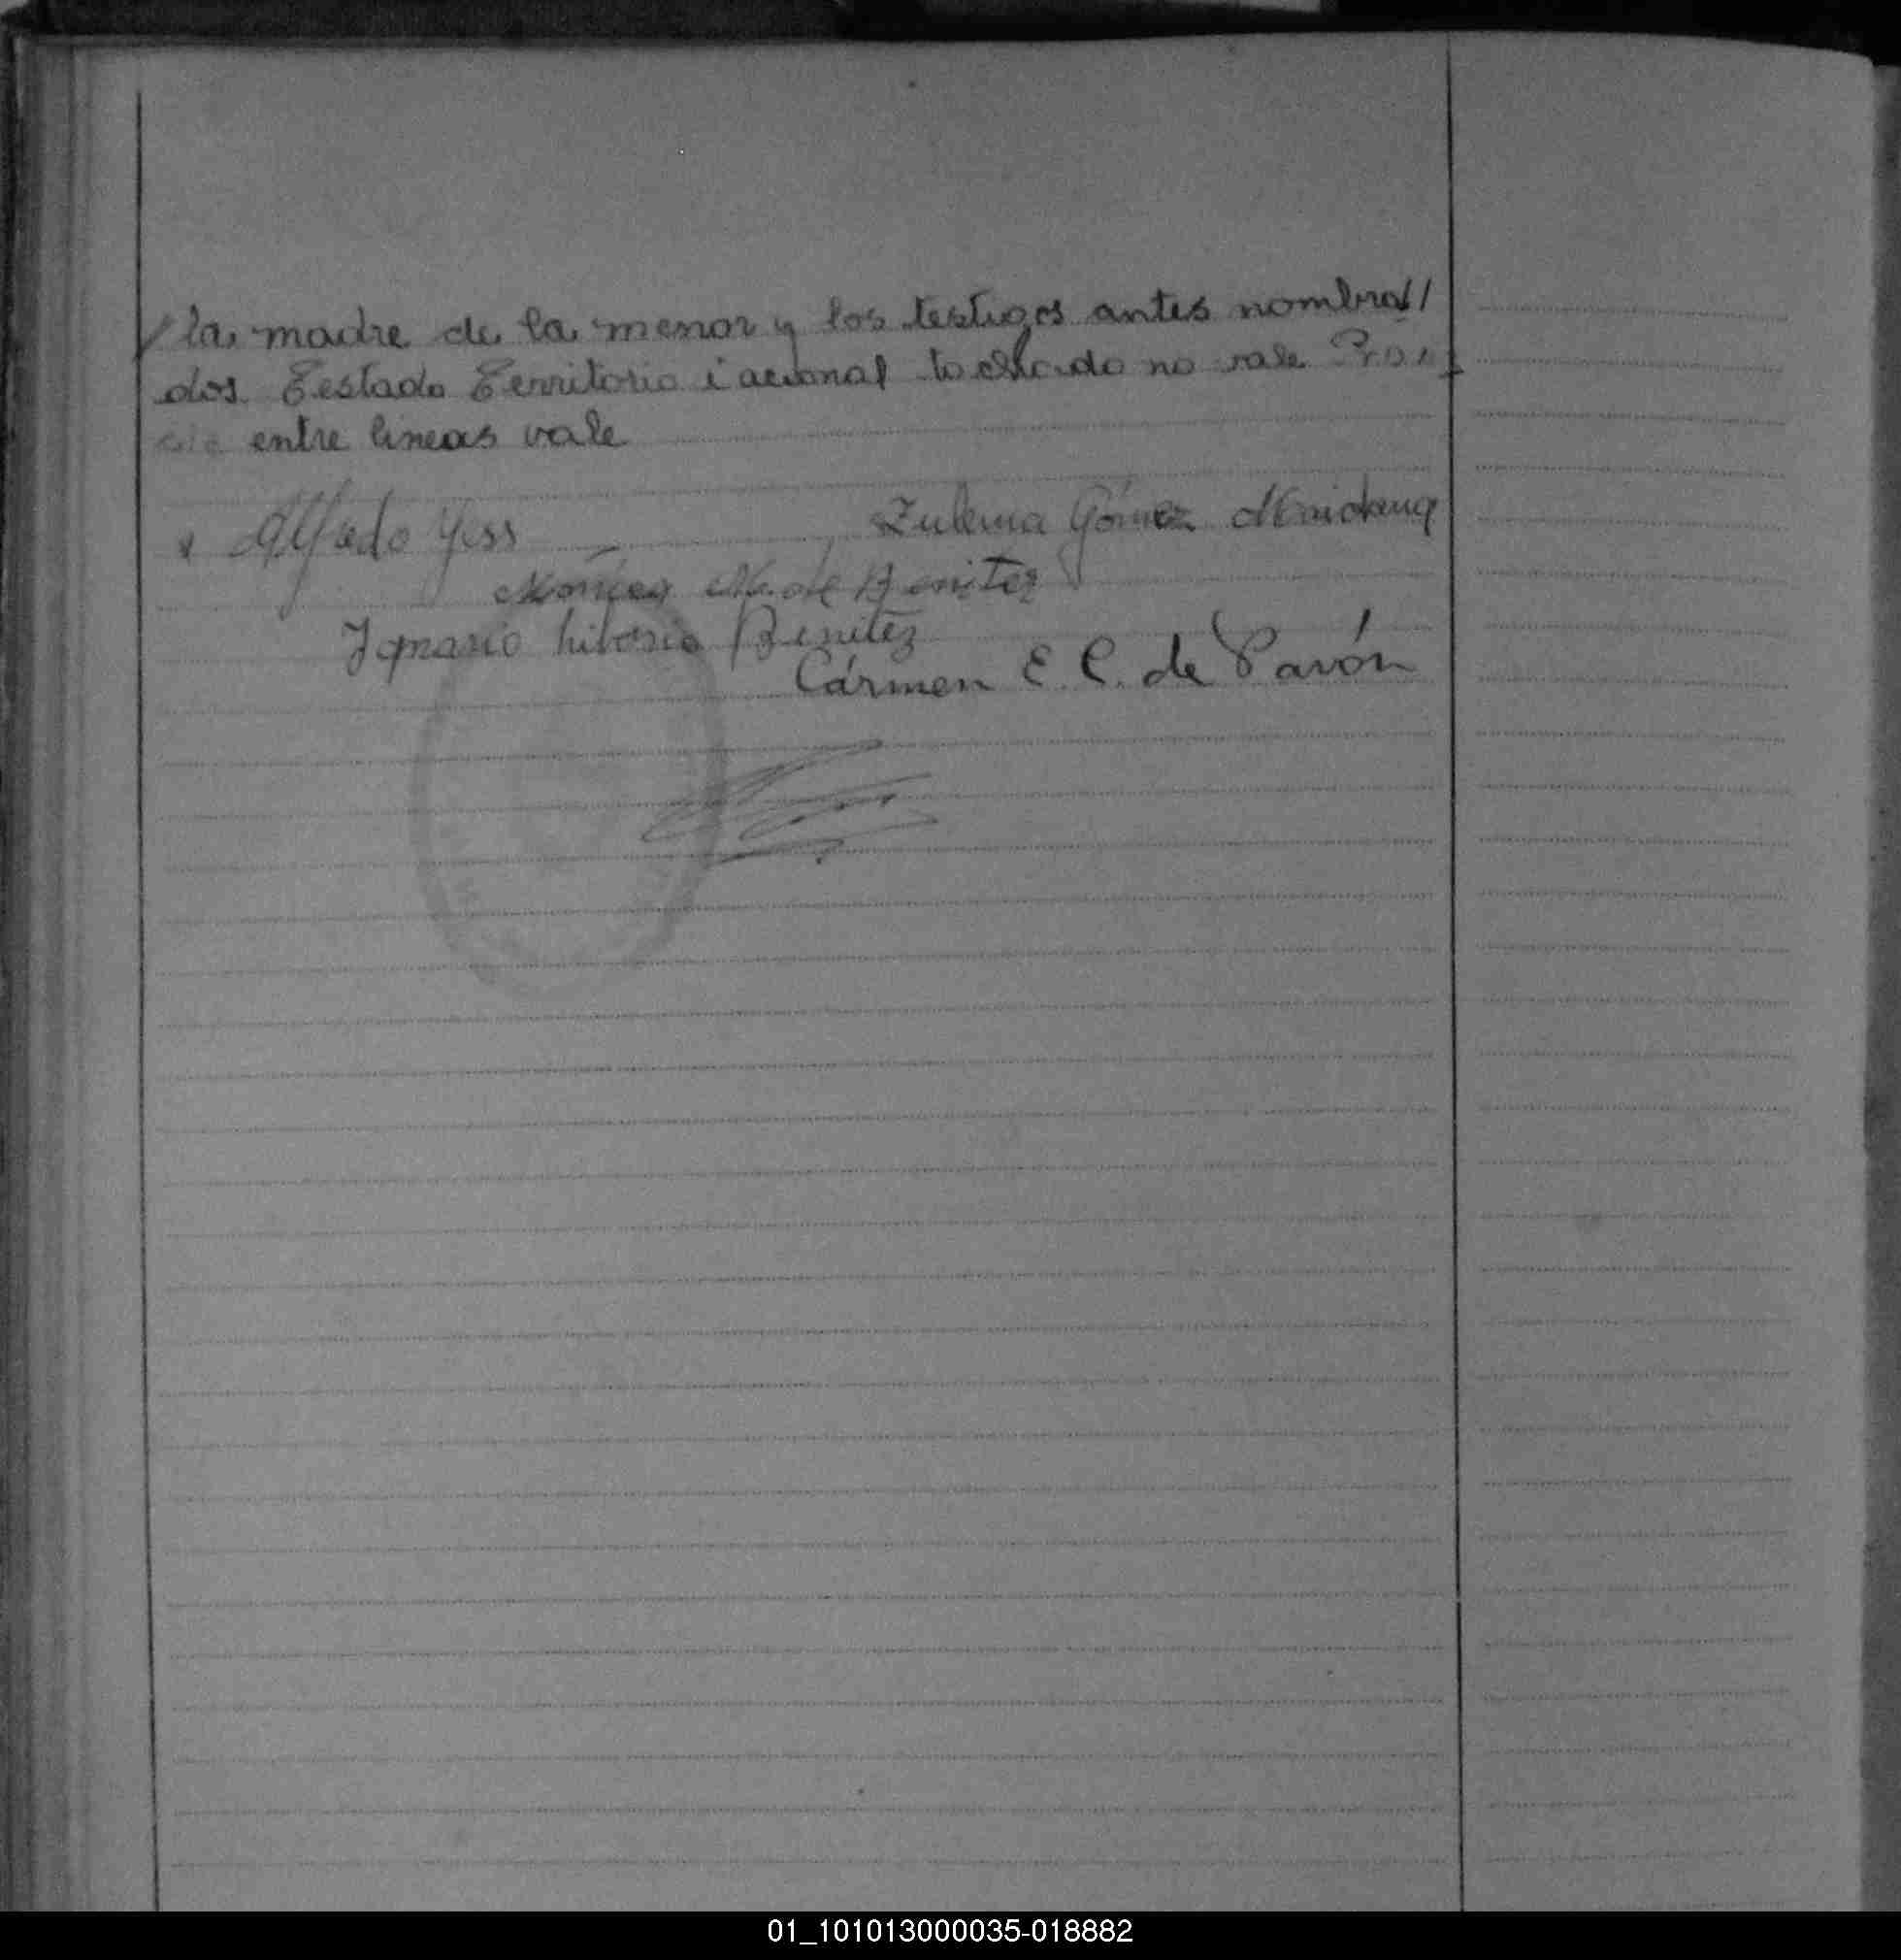 /la madre de la menor y los testigos antes nombra//
dos. Testado Territorio acional tachado no vale Pro
entre lineas vale
Alfredo Yess
Zulema Gómez
de Benitez
Ignasio Liborio Benitez
Cármen E. C. de Pavón
01_101013000035-018882